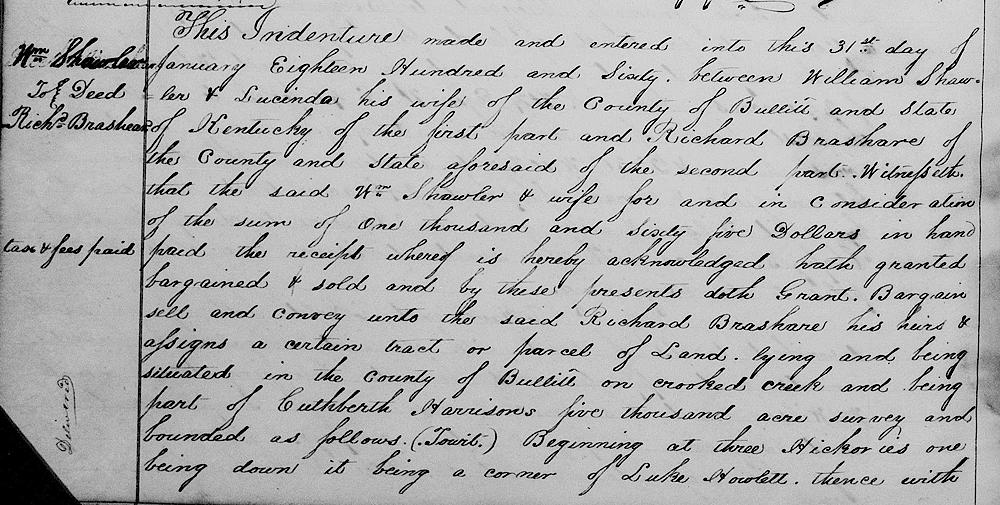 Wm Shawler
To } Deed
Richd Brashear
tax & fees paid
Delivered
This Indenture made and entered into this 31st day of
January Eighteen Hundred and Sixty. between William Shaw-
ler & Lucinda his wife of the County of Bullitt and State
of Kentucky of the first part and Richard Brashare of
the County and State aforesaid of the second part. Witnesseth.
that the said Wm Shawler & wife for and in consideration
of the sum of One thousand and sixty five Dollars in hand
paid the receipt whereof is hereby acknowledged hath granted
bargained & sold and by these presents doth Grant. Bargain
sell and convey unto the said Richard Brashare his heirs &
assigns a certain tract or parcel of Land. lying and being
situated in the County of Bullitt on crooked creek and being
part of Cuthberth Harrisons five thousand acre survey and
bounded as follows. (Towit.) Beginning at three Hickories one
being down it being a corner of Luke Howlett. thence with